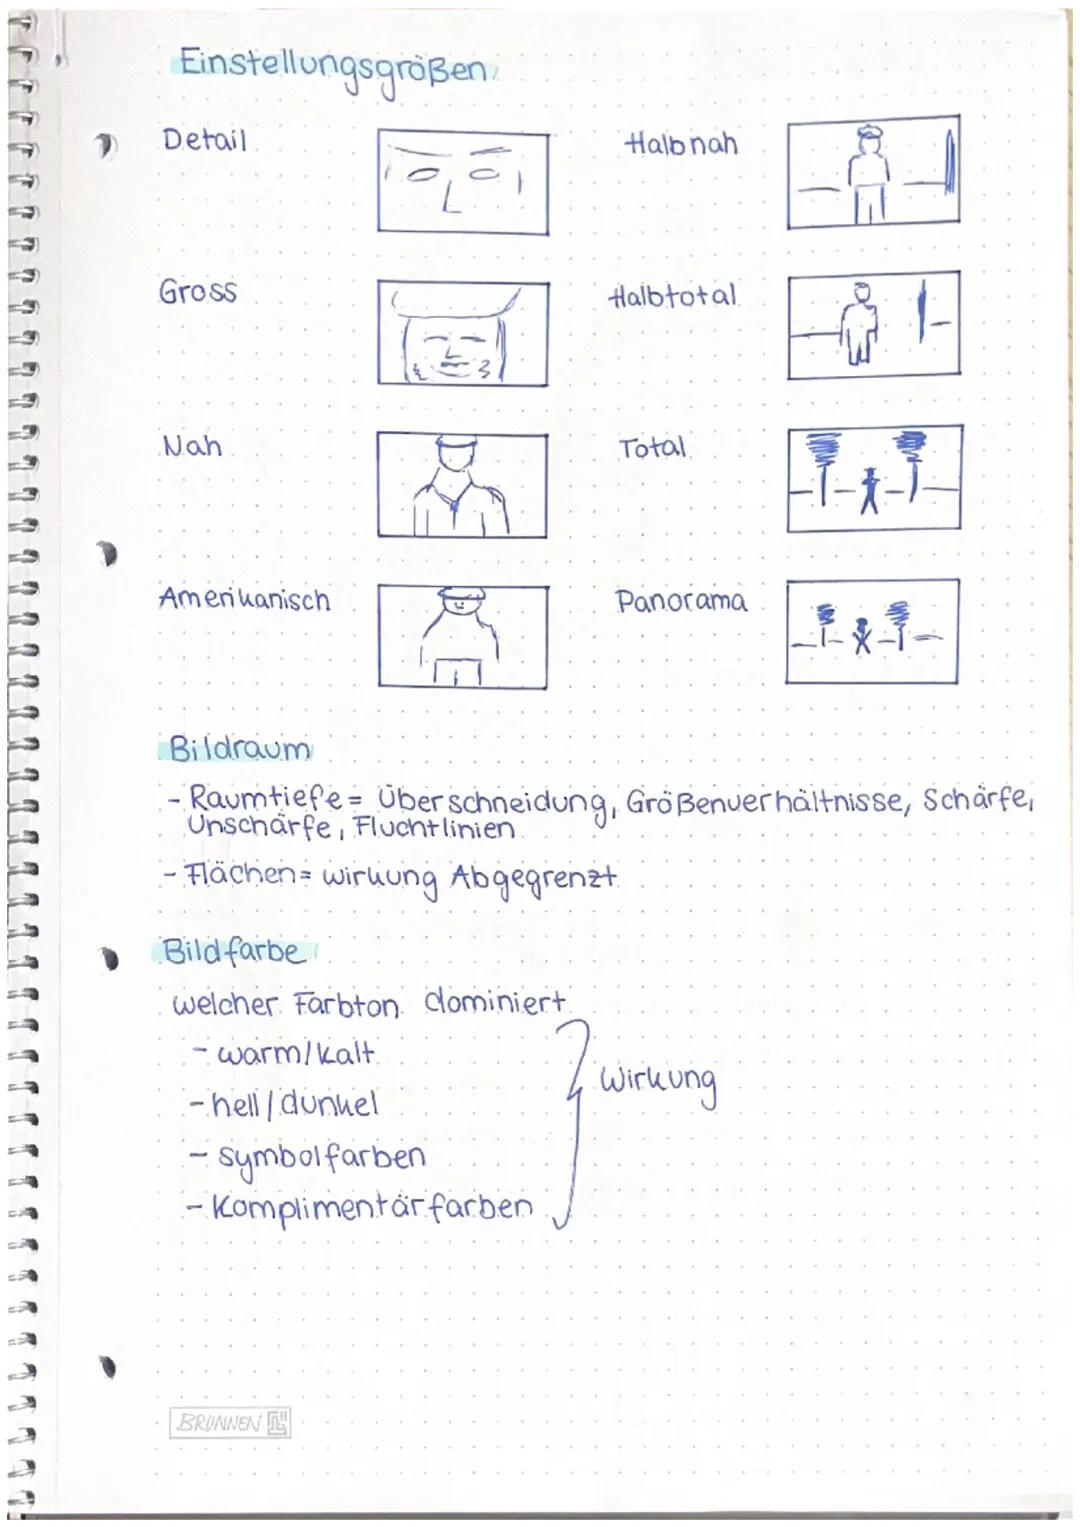 Einstellungsgrößen
Detail
Halbnah
Gross
Halbtotal
Nah
Total
Amerikanisch
Panorama
Bildraum
- Raumtiefe = Überschneidung, Größenverhältnisse, Schärfe,
Unschärfe, Fluchtlinien
- Flächen = wirkung Abgegrenzt
Bildfarbe
welcher Farbton dominiert
- warm/kalt
Wirkung
- hell/dunkel
- symbolfarben
- Komplimentärfarben
BRUNNEN